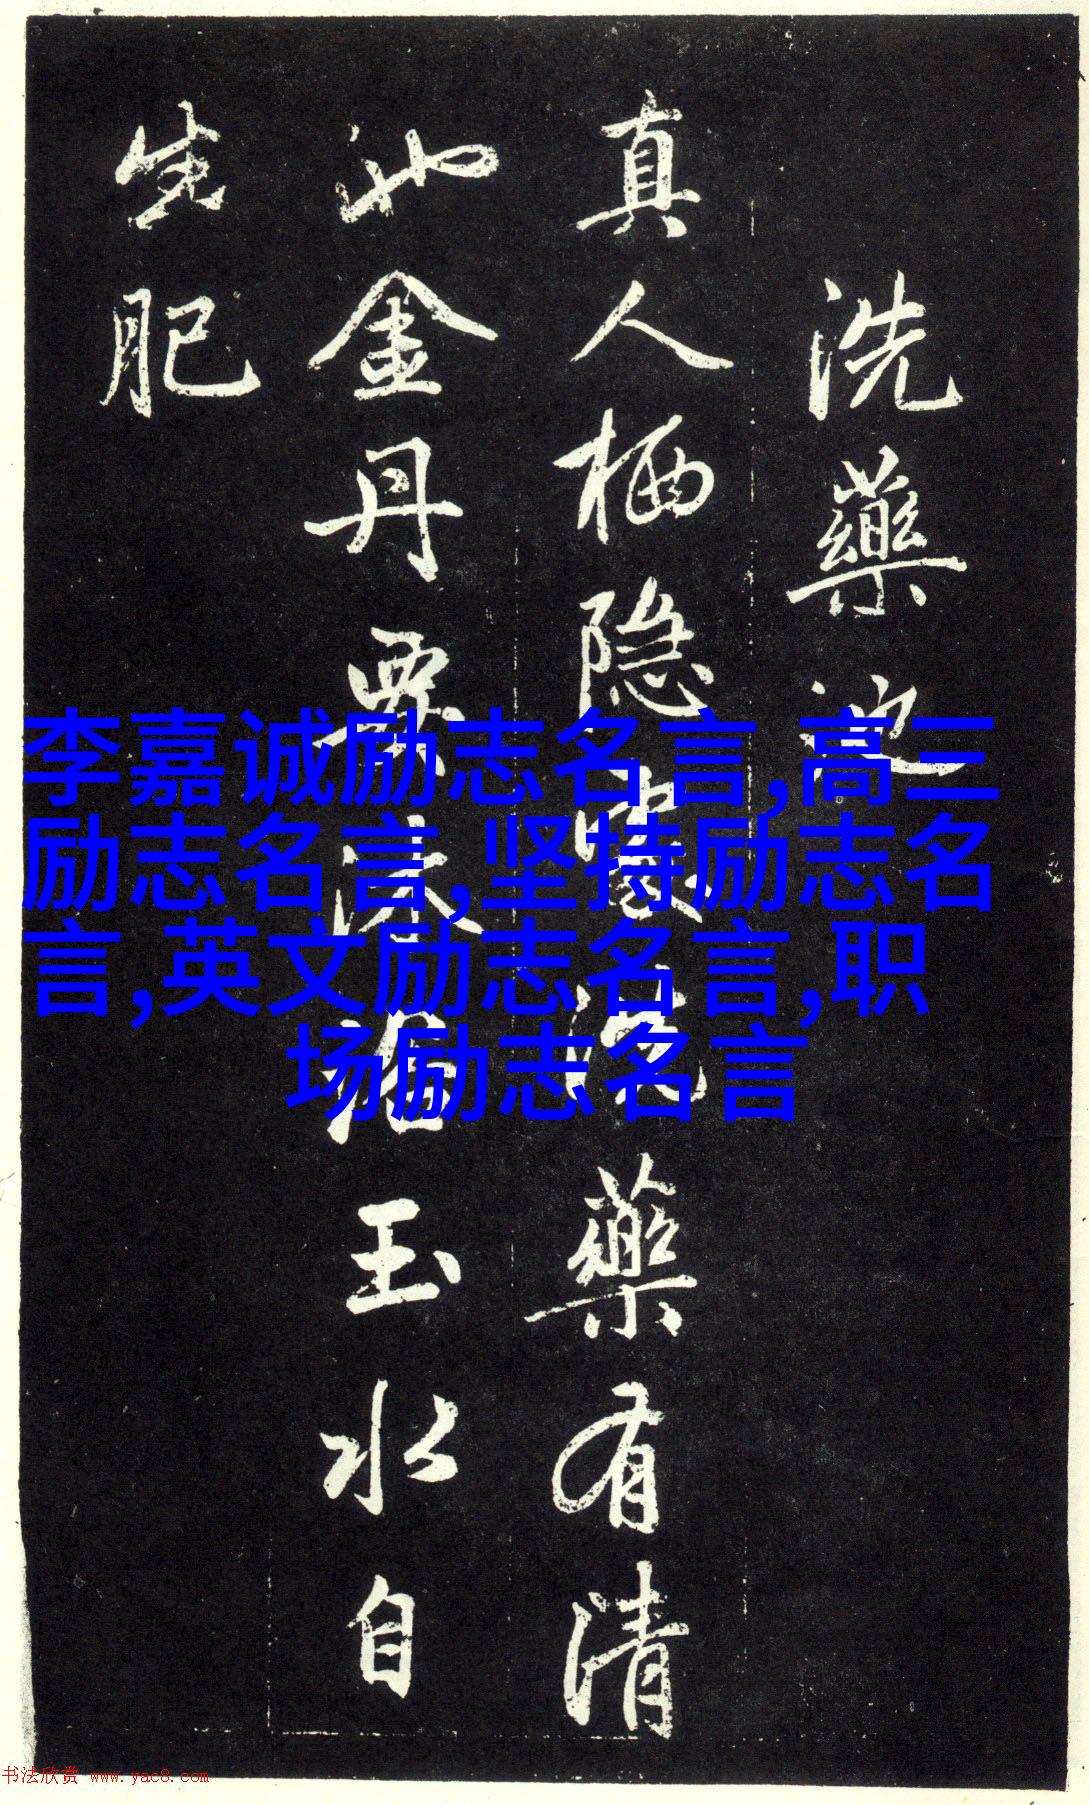 洗藥池
真人栖隐處洗藥有清
池金丹要沐浴玉水自
生肥
李嘉诚励志名言,高三
励志名言,坚持励志名
言,英文励志名言,职
场励志名言
书法欣赏 www.yac8.com